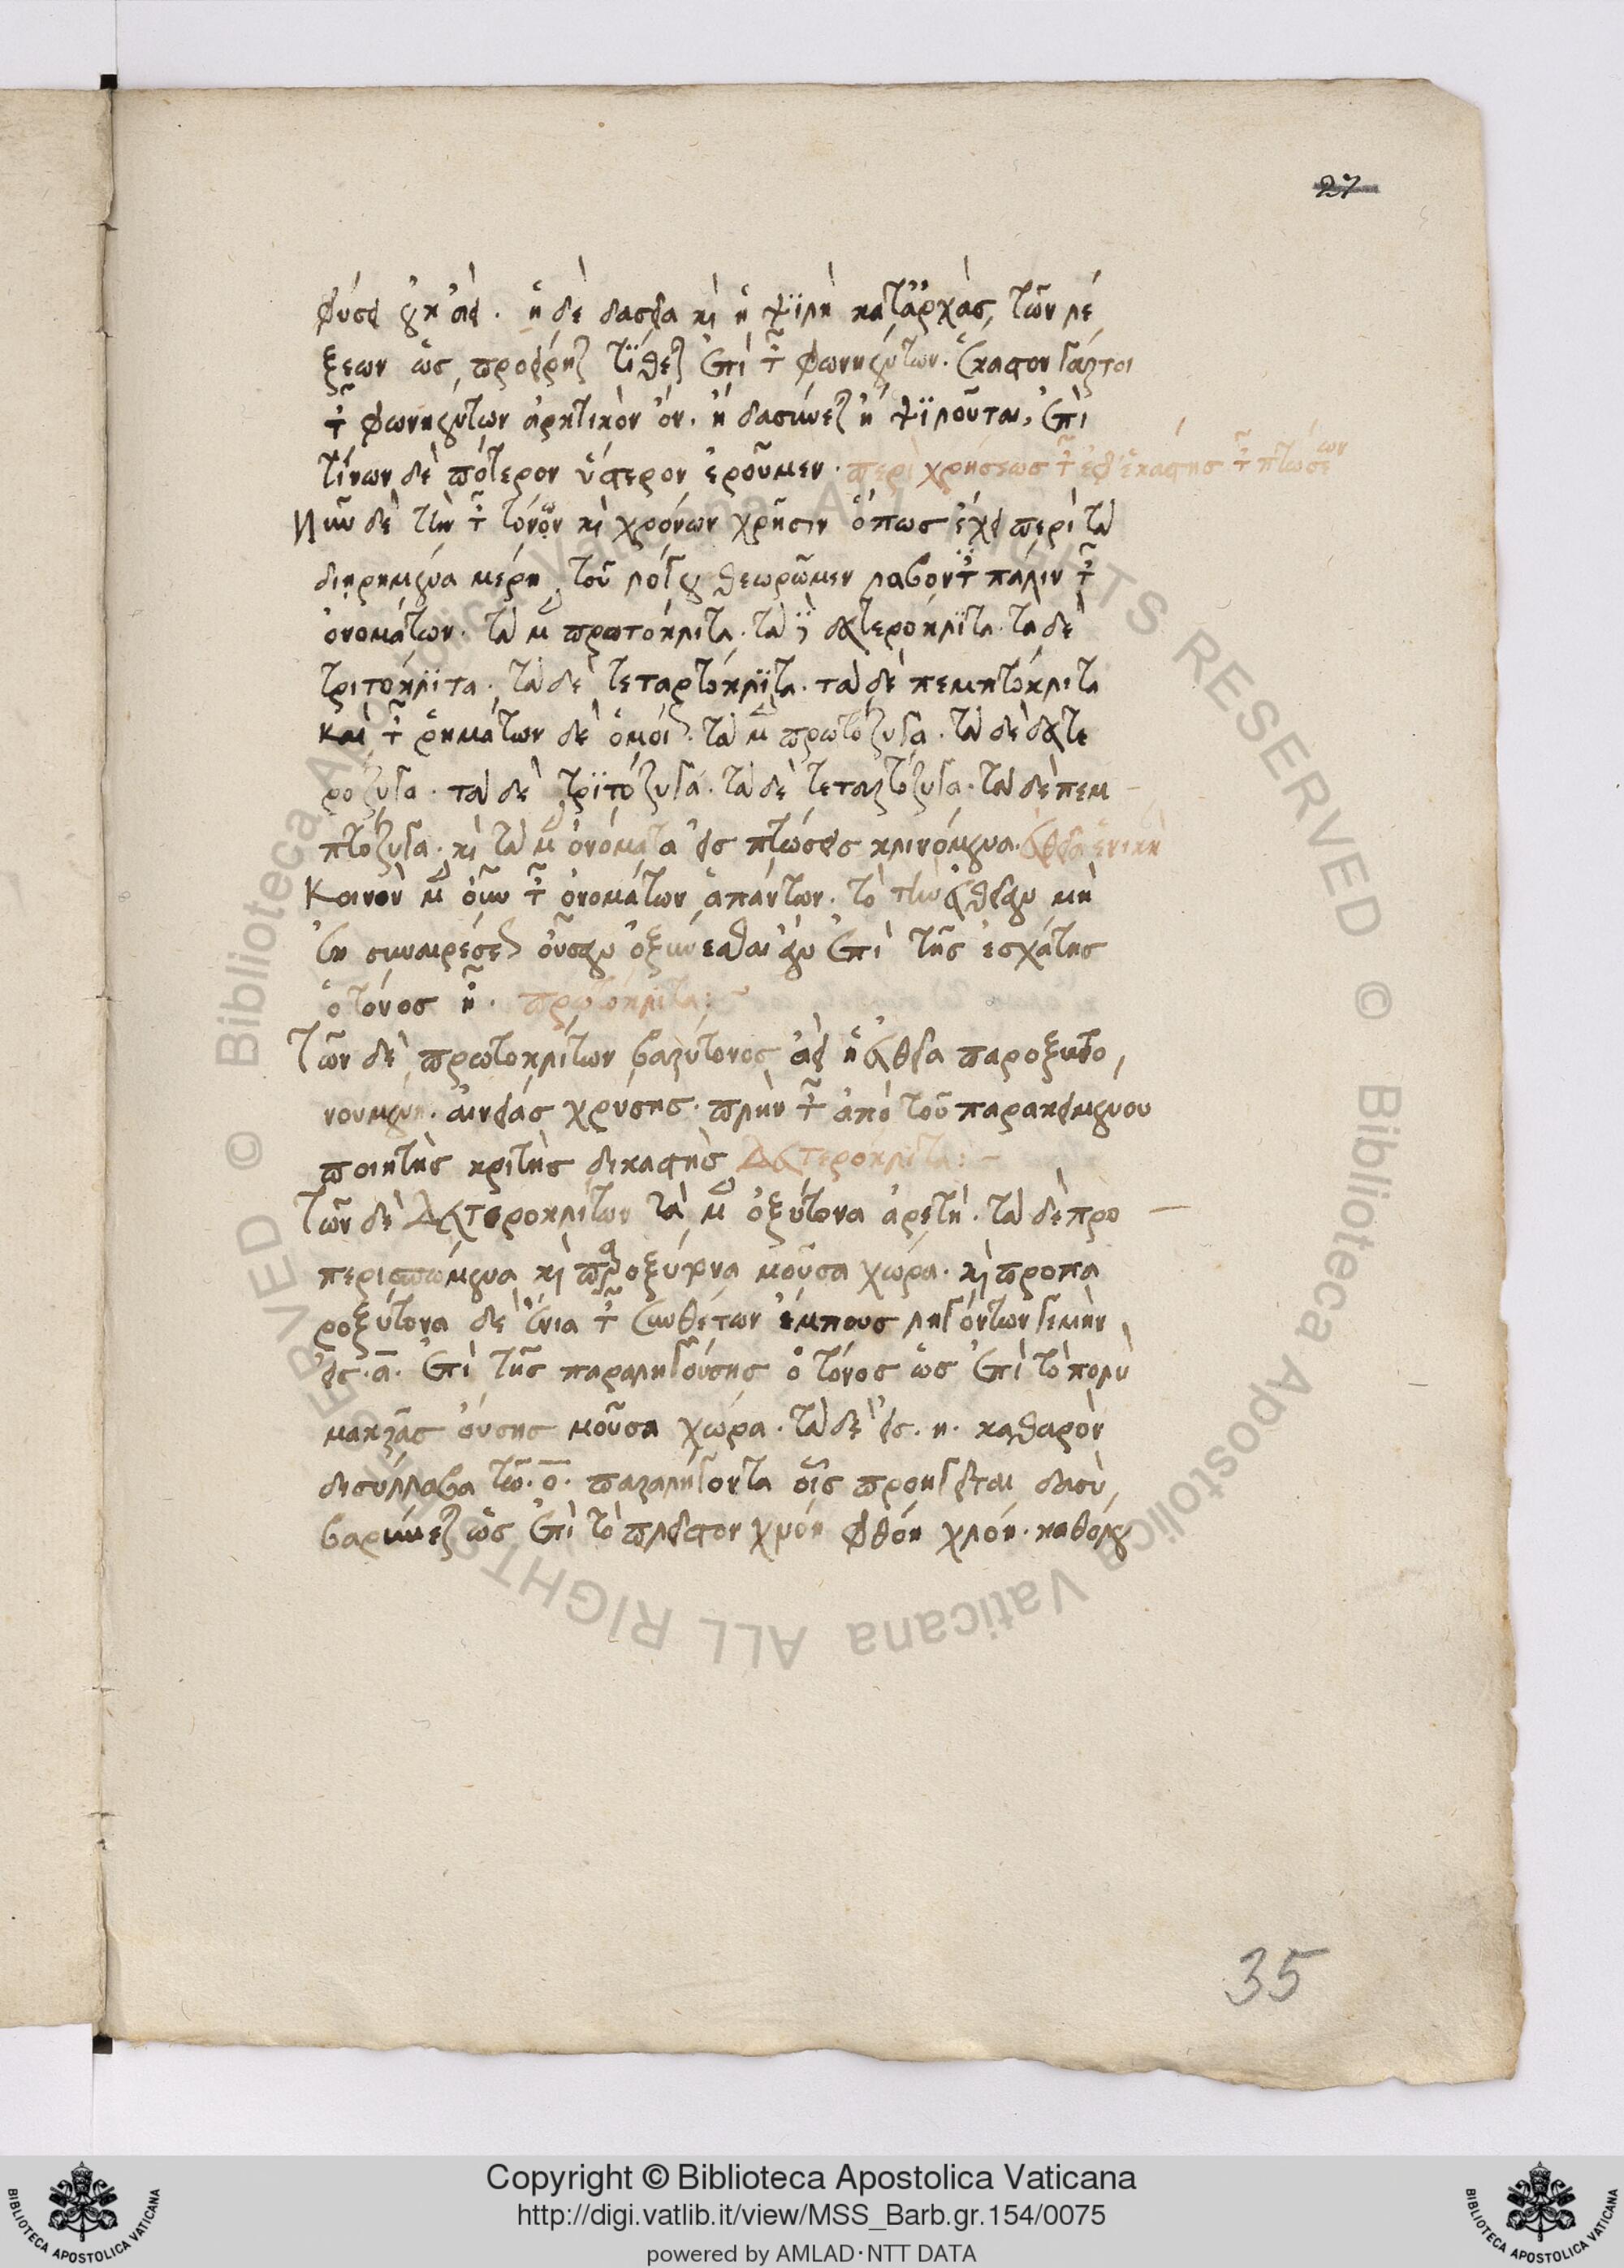 27
φύσει οὐκ ἀεί. ἡ δὲ δασεῖα καὶ ἡ ψϊλὴ κατἀρχὰς τῶν λέ
ξεων ὡς προείρηται τίθεται ἐπὶ τῶν φωνηέντων. ἕκαστον γάρτοι
τῶν φωνηέντων ἀρκτικὸν ὂν. ἢ δασύνεται ἢ ψϊλοῦται, ἐπὶ
τίνων δὲ πότερον ὕστερον ἐροῦμεν. περὶ χρήσεως τῶν ἐφ ἑκάστης τῶν πτώσεων
Νῦν δὲ τὴν τῶν τόνων καὶ χρόνων χρῆσιν ὅπως ἔχει περὶ τὰ
διῃρημένα μέρη τοῦ λόγου θεωρῶμεν λαβόντες πάλιν τῶν
ὀνομάτων. τὰ μὲν πρωτόκλιτα. τὰ δὲ δευτερόκλϊτα. τὰ δὲ
τριτόκλϊτα. τὰ δὲ τεταρτόκλϊτα. τὰ δὲ πεμπτόκλιτα
καὶ τῶν ῥημάτων δὲ ὁμοίως. τὰ μὲν πρωτόζυγα. τὰ δὲ δευτε
ρόζυγα. τὰ δὲ τρϊτόζυγα. τὰ δὲ τεταρτόζυγα. τὰ δὲ πεμ
πτόζυγα. καὶ τὰ μὲν ὀνόματα εἰς πτώσεις κλινόμενα. εὐθεῖα ἑνικὴ
Κοινὸν μὲν οὖν τῶν ὀνομάτων ἁπάντων. τὸ τὴν εὐθεῖαν μὴ
ἐκ συναιρέσεως οὖσαν ὀξύνεσθαι ἂν ἐπὶ τῆς ἐσχάτης
ὁ τόνος ᾖ. πρωτόκλιτα:
Τῶν δὲ πρωτοκλίτων βαρύτονος ἀεὶ ἡ εὐθεῖα παροξυτο
νουμένη. αἰνείας χρύσης. πλὴν τῶν ἀπὸ τοῦ παρακειμένου
ποιητὴς κριτὴς δικαστὴς Δευτερόκλιτα:
Τῶν δὲ Δευτεροκλίτων τὰ μὲν ὀξύτονα ἀρετή. τὰ δὲ προ
περισπώμενα καὶ παροξύτονα μοῦσα χώρα. καὶ προπα
ροξύτονα δὲ ἔνια τῶν συνθέτων ἔμπους ληγόντων γεμὴν
εἰς. α. ἐπὶ τῆς παραληγούσης ὁ τόνος ὡς ἐπὶ τὸ πολὺ
μακρᾶς οὔσης μοῦσα χώρα. τὰ δὲ εἰς. η. καθαρὸν
δισύλλαβα τῶ. ο. παραλήγοντα οἷς προηγεῖται δασὺ,
βαρύνεται ὡς ἐπὶ τὸ πλεῖστον χνόη φθόη χλόη. καθόλου
35
Copyright © Biblioteca Apostolica Vaticana
http://digi.vatlib.it/view/MSS_Barb.gr.154/0075
powered by AMLAD·NTT DATA